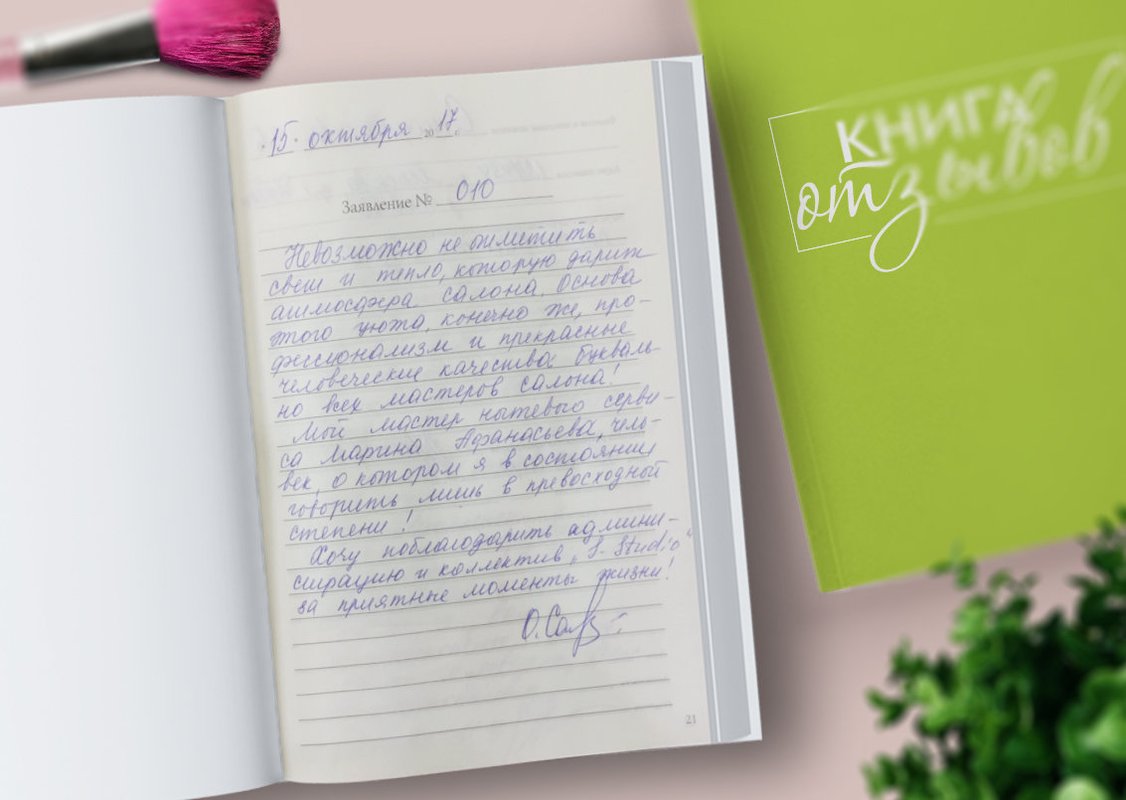 "15" октября 2017 г.
Заявление № 010
Невозможно не отметить
свет и тепло, которую дарит
атмосфера салона. Основа
этого уюта, конечно же, про-
фессионализм и прекрасные
человеческие качества букваль-
но всех мастеров салона!
Мой мастер ногтевого серви-
са Марина Афанасьева, чело-
век, о котором я в состоянии
говорить лишь в превосходной
степени!
Хочу поблагодарить админи-
страцию и коллектив „S. Studio"
за приятные моменты жизни!
21
КНИГА
отзывов